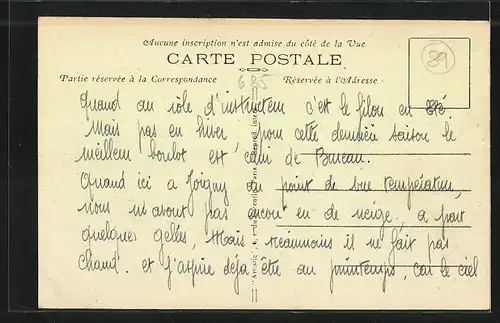 Aucune inscription n'est admise du côté de la Vue
CARTE POSTALE
Partie réservée à la Correspondance
Réservée à l'Adresse
89
625
Quand au rôle d'instructeur c'est le filon en Eté
Mais pas en hiver, pour cette dernière saison le
meilleur boulot est celui de Bureau.
Quand ici a Joigny au point de vue température,
nous n'avons pas encore eu de neige, a part
quelques gelées, Mais néanmoins il ne fait pas
Chaud. et j'aspire déja etre au printemps, car le ciel